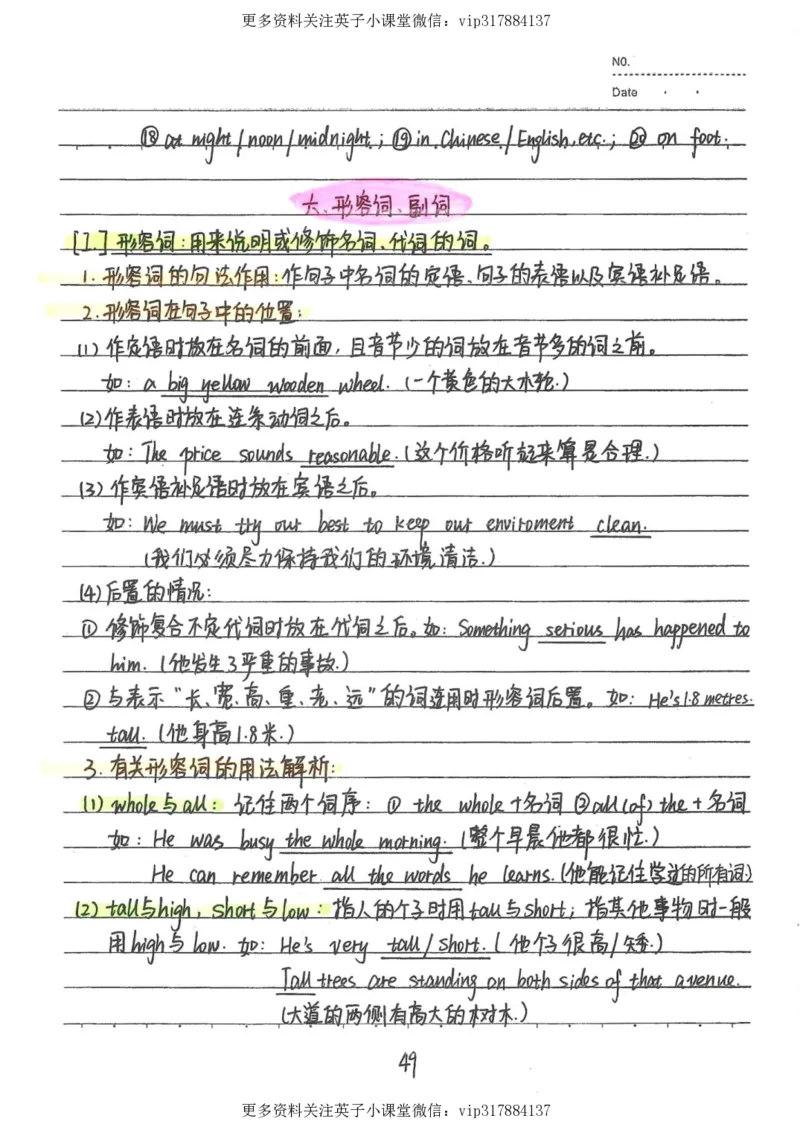 更多资料关注英子小课堂微信：vip317884137
NO.
Date
⑱ at night / noon / midnight. ; ⑲ in Chinese / English, etc. ; ⑳ on foot.
六、形容词、副词
[I.] 形容词：用来说明或修饰名词、代词的词。
1. 形容词的句法作用：作句子中名词的定语、句子的表语以及宾语补足语。
2. 形容词在句子中的位置：
(1) 作定语时放在名词的前面，且音节少的词放在音节多的词之前。
如：a big yellow wooden wheel. (一个黄色的大木轮.)
(2) 作表语时放在连系动词之后。
如：The price sounds reasonable. (这个价格听起来算是合理.)
(3) 作宾语补足语时放在宾语之后。
如：We must try our best to keep our enviroment clean.
(我们必须尽力保持我们的环境清洁.)
(4) 后置的情况：
① 修饰复合不定代词时放在代词之后。如：Something serious has happened to
him. (他发生了严重的事故.)
② 与表示“长、宽、高、重、老、远”的词连用时形容词后置。如：He's 1.8 metres.
tall. (他身高1.8米.)
3. 有关形容词的用法解析：
(1) whole与all：记住两个词序：① the whole + 名词 ② all (of) the + 名词
如：He was busy the whole morning. (整个早晨他都很忙.)
He can remember all the words he learns. (他能记住学过的所有词.)
(2) tall与high, short与low：指人的个子时用tall与short；指其他事物时一般
用high与low. 如：He's very tall / short. (他个子很高/矮.)
Tall trees are standing on both sides of that avenue.
(大道的两侧有高大的树木.)
49
更多资料关注英子小课堂微信：vip317884137